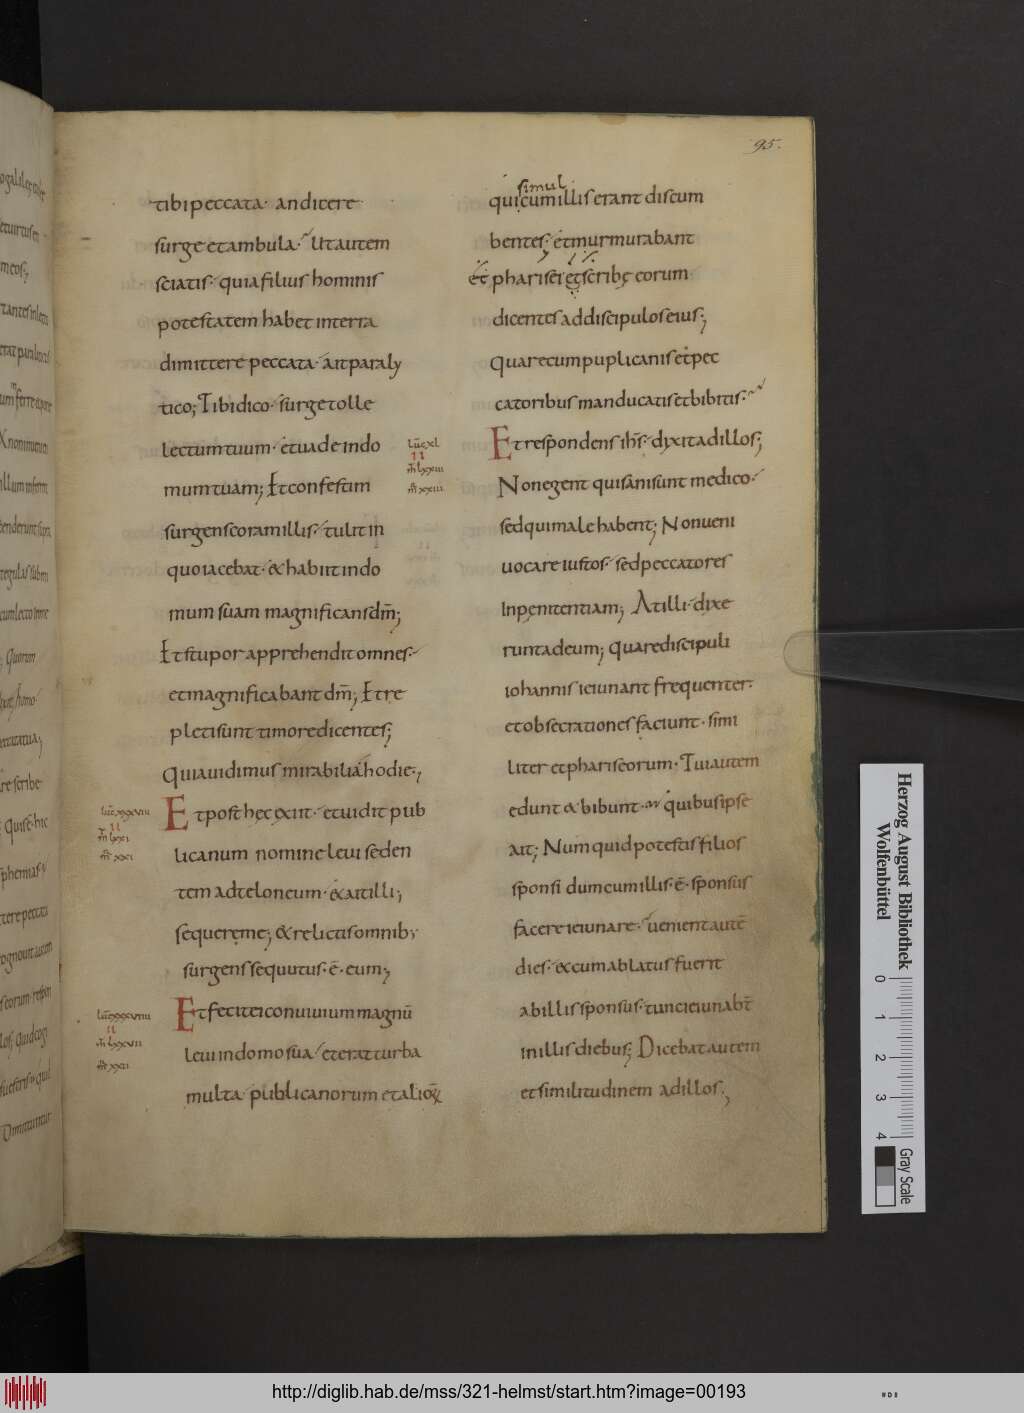 95.
tibi peccata· an dicere
surge et ambula· Ut autem
sciatis· quia filius hominis
potestatem habet in terra
dimittere peccata· ait paraly
tico; Tibi dico· surge tolle
lectum tuum· et uade in do
mum tuam; Et confestim
surgens coram illis· tulit in
quo iacebat· & habiit in do
mum suam magnificans dm̄;
Et stupor apprehendit omnes·
et magnificabant dm̄; Et re
pleti sunt timore dicentes;
Quia uidimus mirabilia hodie;
luc̄ xxxviii
II
m̄ lxxi
mr̄ xxi
Et post hęc exiit· et uidit pub
licanum nomine leui seden
tem ad teloneum· & ait illi;
sequere me; & relictis omnib;
surgens sequutus· ē· eum;
luc̄ xxxviiii
II
m̄ lxxii
mr̄ xxii
Et fecit ei conuiuium magnū
leui in domo sua· et erat turba
multa· publicanorum et alioꝝ
simul
qui cum illis erant discum
bentes· et murmurabant
et pharisei et scribę eorum
dicentes ad discipulos eius;
Quare cum puplicanis et pec
catoribus manducatis et bibitis·
luc̄ xl
II
m̄ lxxiii
mr̄ xxiii
Et respondens ihs̄· dixit ad illos;
Non egent qui sani sunt medico·
sed qui male habent; Non ueni
uocare iustos· sed peccatores
In penitentiam; At illi· dixe
runt ad eum; quare discipuli
iohannis ieiunant frequenter·
et obsecrationes faciunt· simi
liter et phariseorum· Tui autem
edunt & bibunt· quibus ipse
ait; Num quid potestis filios
sponsi dum cum illis· ē· sponsus
facere ieiunare· uenient autē
dies· & cum ablatus fuerit
ab illis sponsus· tunc ieiunabt̄
in illis diebus; Dicebat autem
et similitudinem ad illos;
Herzog August Bibliothek
Wolfenbüttel
0 1 2 3 4
Gray Scale
http://diglib.hab.de/mss/321-helmst/start.htm?image=00193